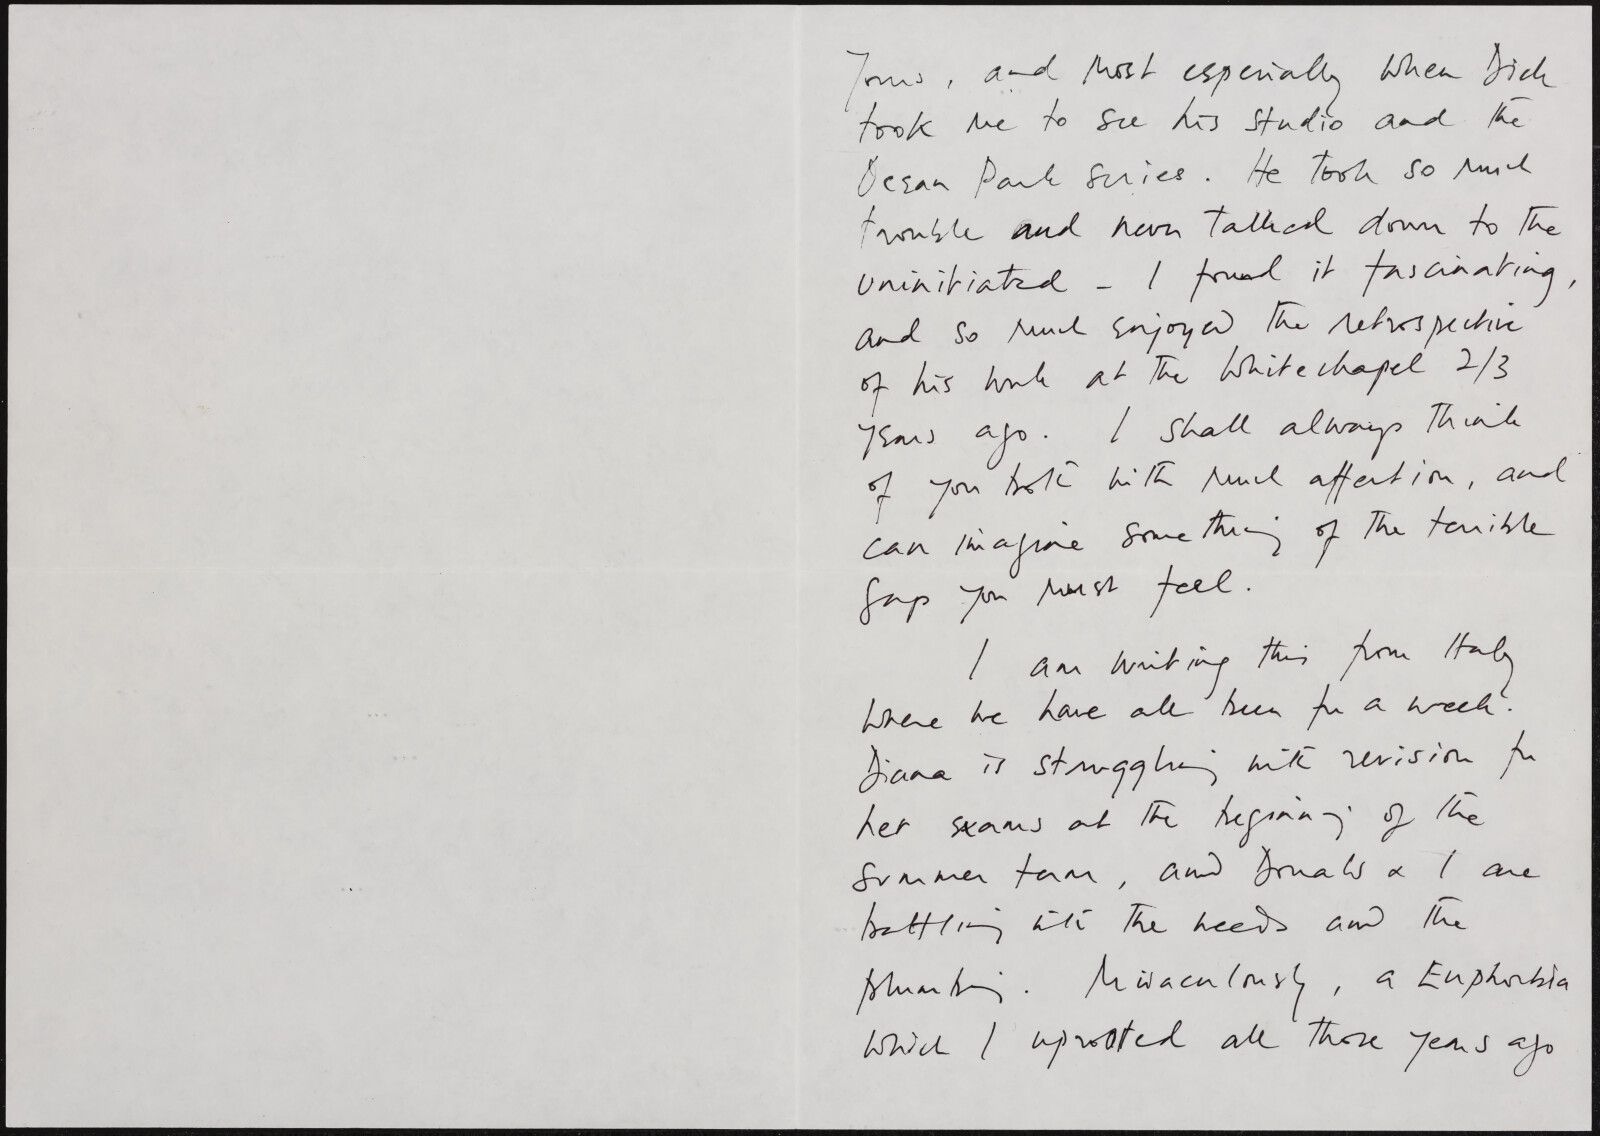 Yours, and most especially when Dick
took me to see his studio and the
Ocean Park series. He took so much
trouble and never talked down to the
uninitiated - I found it fascinating,
and so much enjoyed the retrospective
of his work at the Whitechapel 2/3
years ago. I shall always think
of you both with much affection, and
can imagine something of the terrible
gap you must feel.
I am writing this from Italy
where we have all been for a week.
Diana is struggling with revision for
her exams at the beginning of the
summer term, and Donald & I are
battling with the weeds and the
plumbing. Miraculously, a Euphorbia
which I uprooted all those years ago